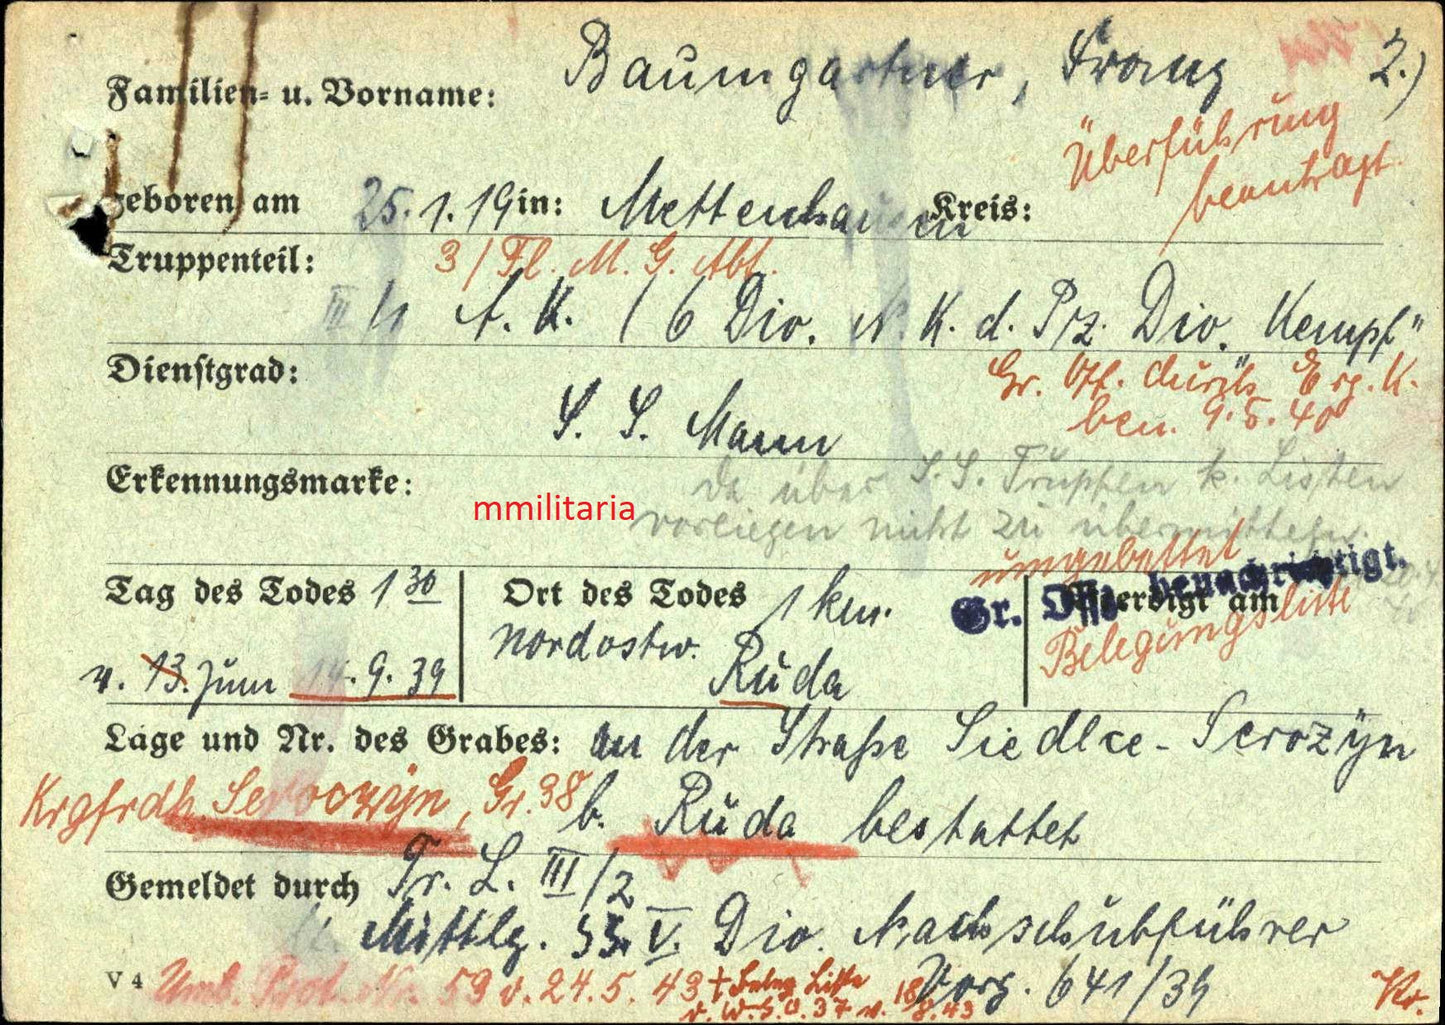 Familien- u. Vorname: Baumgartner, Franz 2.)
Überführung
beantragt.
Geboren am 25.1.19 in: Mettenhausen Kreis:
Truppenteil: 3/Fl. M. G. Abt.
A. K. (6 Div. N. K. d. Pz. Div. Kempf"
Dienstgrad: Gr. Off. durch Erg. K.
ben. 9.5.40
S. S. Mann
Erkennungsmarke: da über S.S. Truppen k. Listen
mmilitaria vorliegen nicht zu übermitteln.
umgebettet
Tag des Todes 1 30 Ort des Todes 1 km. Gr. Off. benachrichtigt.
Beerdigt am
nordostw. Belegungsliste
v. 13. zum 14.9.39 Ruda
Lage und Nr. des Grabes: an der Straße Siedlce - Seroczyn
Krgfrdh. Seroczyn, Gr. 38 b. Ruda bestattet
Gemeldet durch Tr. L. III/2
Mittlg. SS. V. Div. Nachschubführer
V 4 Umb. Prot. Nr. 59 v. 24.5.43 + Beleg Liste Vorg. 641/39 Kr.
v. W.S.O. 37 v. 18.8.43